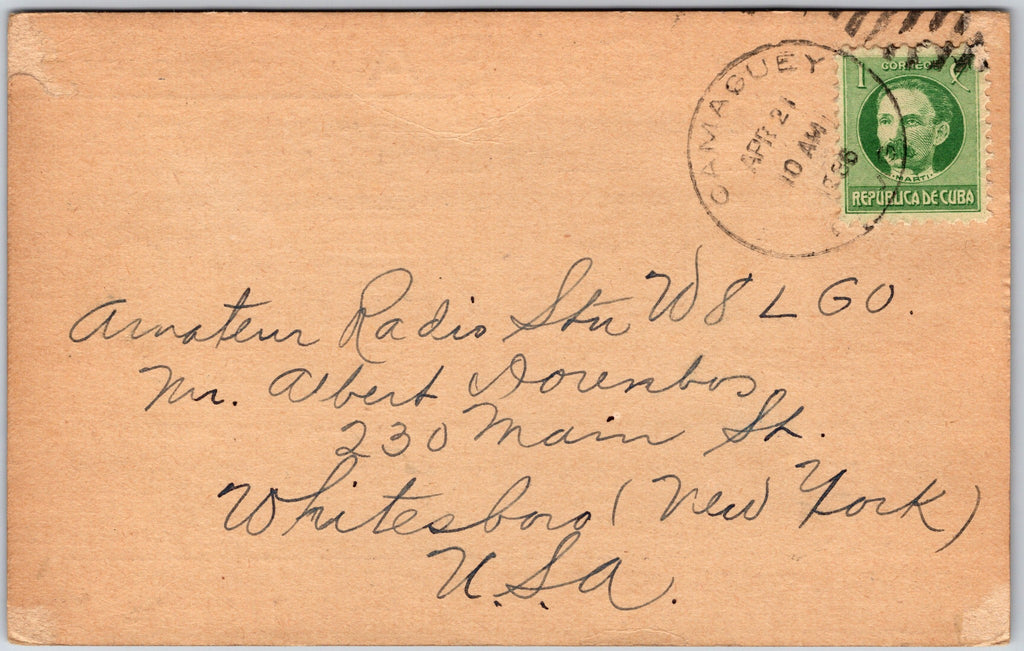 CAMAGUEY
APR 21
10 AM
1 CORREOS ¢
MARTI
REPUBLICA DE CUBA
Amateur Radio Stn W8LGO.
Mr. Albert Dorenbos
230 Main St.
Whitesboro (New York)
U.S.A.